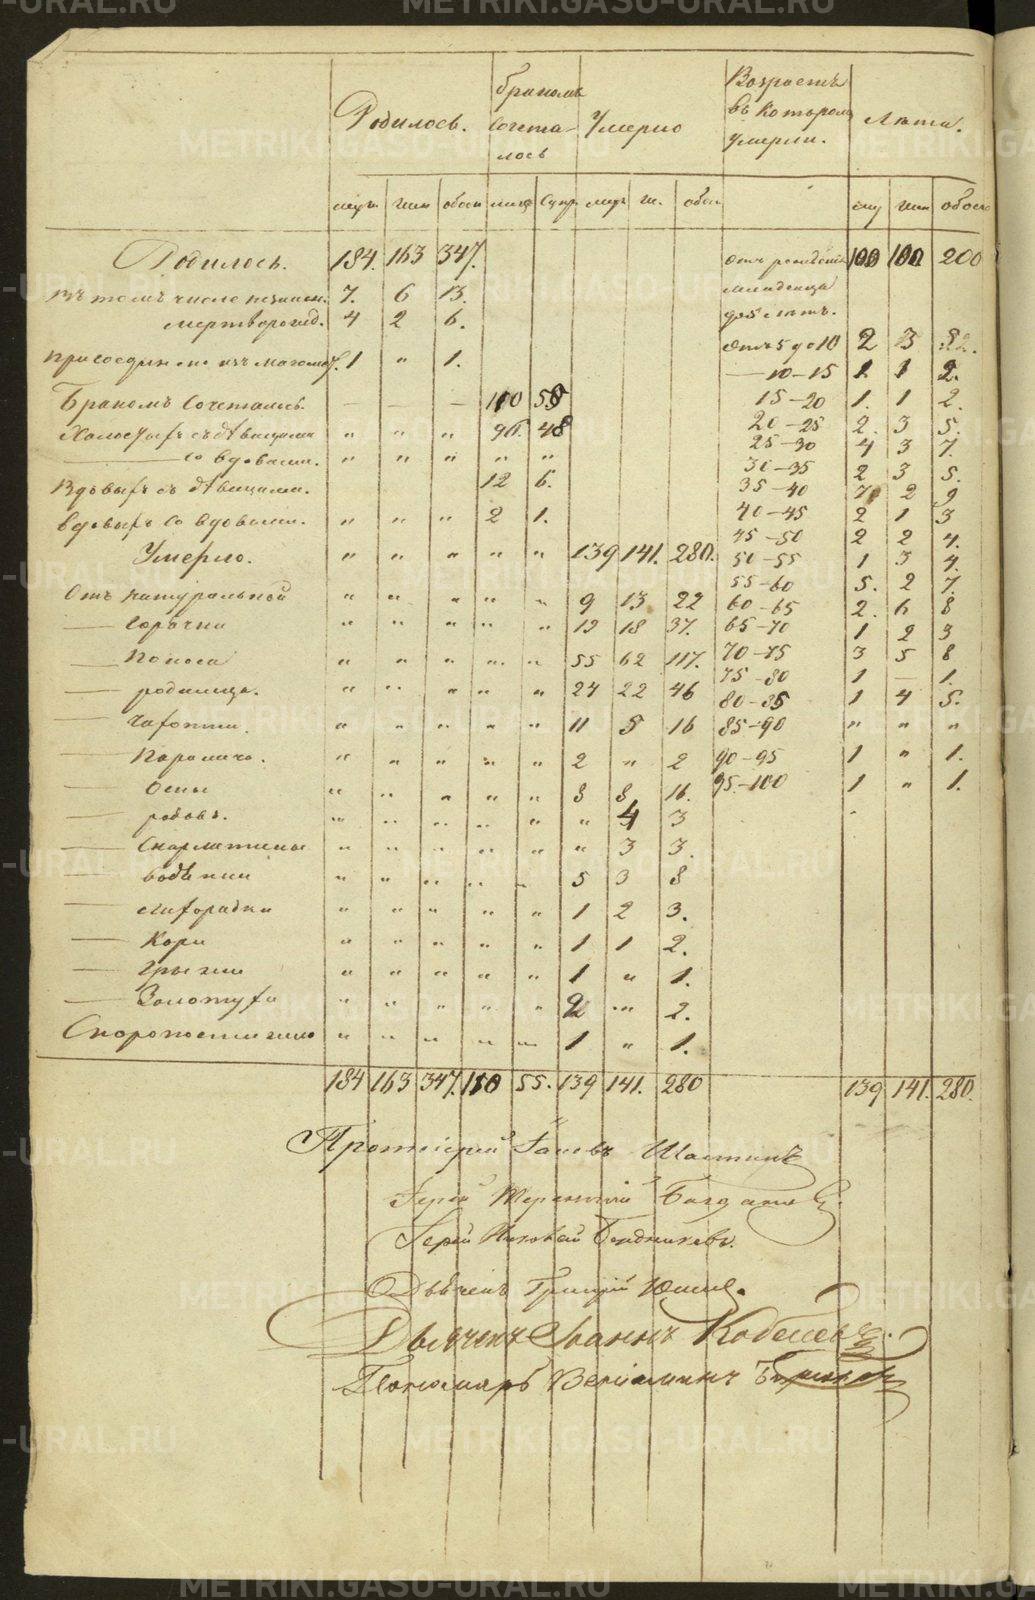 Родилось. Бракомъ сочеталось Умерло Возрастъ въ которомъ умерли. Лѣта.
муж. жен обоего лицъ супр. муж ж. обоего муж жен обоего
Родилось. 184. 163 347. отъ рожденія 100 100 200
Въ томъ числе незакон. 7. 6 13. младенца
мерторожд. 4 2 6. до 5 лѣтъ.
1 " 1. Отъ 5 до 10 2 3
— 10-15 1 1 2.
Бракомъ сочеталось. — — — 110 55 15-20 1. 1 2.
Холостыхъ съ дѣвицами " " " 96. 48 20-25 2. 3 5.
— со вдовами. " " " " " 25-30 4 3 7.
Вдовыхъ съ дѣвицами. 12 6. 30-35 2 3 5.
35-40 7 2 9
Вдовыхъ со вдовами. " " " 2 1. 40-45 2 1 3
Умерло. " " " " " 139 141. 280. 45-50 2 2 4.
50-55 1 3 4.
Отъ натуральной " " " " " 9 13 22 55-60 5. 2 7.
60-65 2. 6 8
— Горячки " " " " " 19 18 37. 65-70 1 2 3
— Поноса " " " " " 55 62 117. 70-75 3 5 8
75-80 1 — 1.
— родимца. " " " " " 24 22 46 80-85 1 4 5.
— Чахотки. " " " " " 11 5 16 85-90 " " "
— Паралича. " " " " " 2 " 2 90-95 1 " 1.
— Оспы " " " " " 8 8 16. 95-100 1 " 1.
— родовъ. " " " " " " 4 3
— Скарлатины " " " " " " 3 3.
— водянки " " " " " 5 3 8
— лихорадки " " " " " 1 2 3.
— Кори " " " " " 1 1 2.
— Грыжи " " " " " 1 " 1.
— Золотухи " " " " " 2 " 2.
Скоропостижно " " " " " 1 " 1.
184 163 347. 110 55. 139 141. 280 139 141. 280.
Протоіерей Іаковъ
Іерей Терентій
Іерей Николай
Дьячекъ Григорій
Дьячекъ Іоаннъ
Пономарь Веніаминъ
METRIKI.GASO-URAL.RU